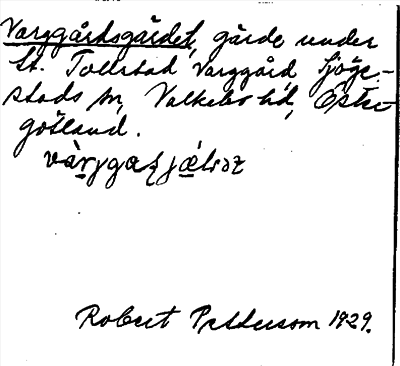 Varggårdsgärdet, gärde under
St. Tollstad Varggård, Sjöge-
stads sn, Valkebo hd, Öster-
götland.
Robert Pettersson 1929.